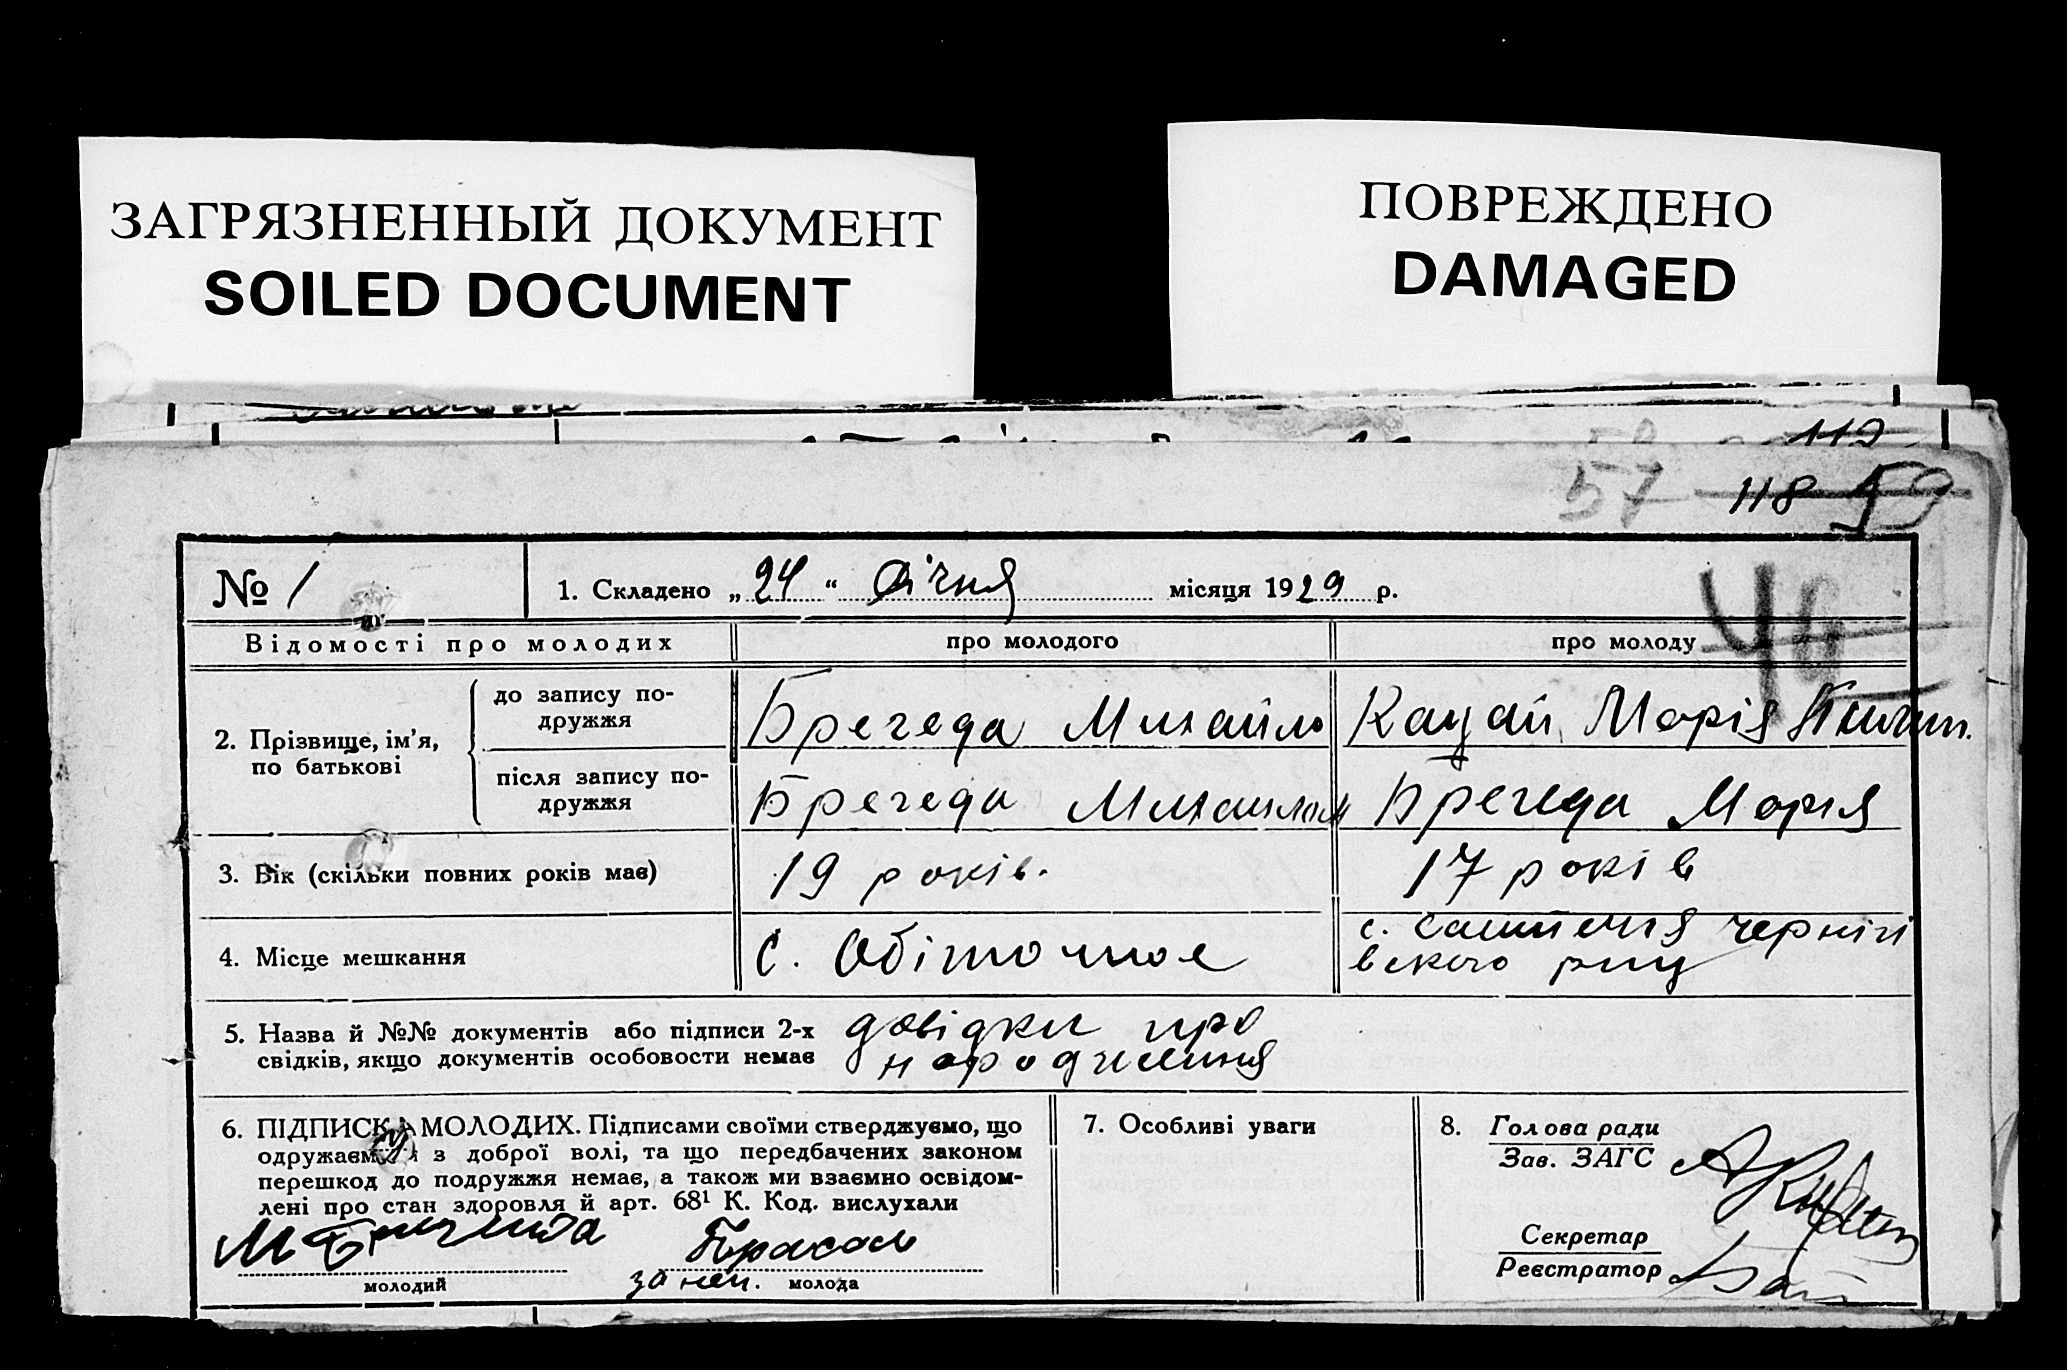 ЗАГРЯЗНЕННЫЙ ДОКУМЕНТ
SOILED DOCUMENT
ПОВРЕЖДЕНО
DAMAGED
112
57 118 59
№ 1
1. Складено „ 24 “ Січня місяця 1929 р.
40
Відомості про молодих
про молодого
про молоду
2. Прізвище, ім’я, по батькові
до запису подружжя
Брегеда Михайло
Кацай Марія
після запису подружжя
Брегеда
Брегеда Мория
3. Вік (скільки повних років має)
19 років.
17 років
4. Місце мешкання
с. Обіточное
с. Чернігівского
5. Назва й №№ документів або підписи 2-х
свідків, якщо документів особовости немає
довідки про
народження
6. ПІДПИСКА МОЛОДИХ. Підписами своїми стверджуємо, що
одружаємося з доброї волі, та що передбачених законом
перешкод до подружжя немає, а також ми взаємно освідом-
лені про стан здоровля й арт. 68¹ К. Код. вислухали
М
за неї.
молодий
молода
7. Особливі уваги
8. Голова ради
Зав. ЗАГС
Секретар
Реєстратор